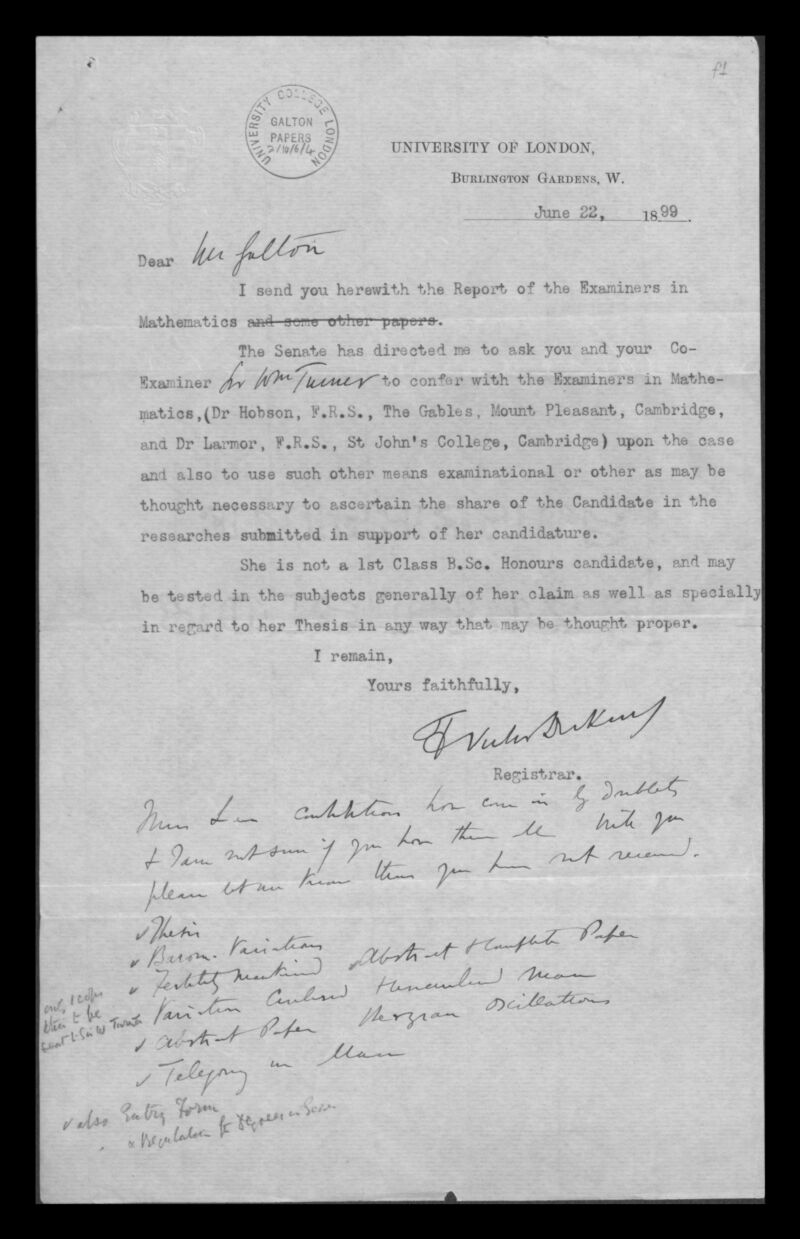 f1
UNIVERSITY COLLEGE LONDON
GALTON
PAPERS
2/10/6/4
UNIVERSITY OF LONDON,
BURLINGTON GARDENS, W.
June 22, 1899.
Dear Mr Galton
I send you herewith the Report of the Examiners in
Mathematics and some other papers.
The Senate has directed me to ask you and your Co-
Examiner Sir Wm Turner to confer with the Examiners in Mathe-
matics,(Dr Hobson, F.R.S., The Gables, Mount Pleasant, Cambridge,
and Dr Larmor, F.R.S., St John's College, Cambridge) upon the case
and also to use such other means examinational or other as may be
thought necessary to ascertain the share of the Candidate in the
researches submitted in support of her candidature.
She is not a 1st Class B.Sc. Honours candidate, and may
be tested in the subjects generally of her claim as well as specially
in regard to her Thesis in any way that may be thought proper.
I remain,
Yours faithfully,
Registrar.
have come in by doublets
& I am not sure if you have them all. Will you
please let me know those you have not received.
✓ Thesis
✓ Barom. Variations
✓ Fertility Mankind ✓ Abstract & Complete Paper
Variation Man
✓ Abstract Paper Oscillations
✓ Telegony in Man
only 1 copy
then to be
sent to Sir W Turner
✓ also Entry Form
& Regulations for Degrees in Science